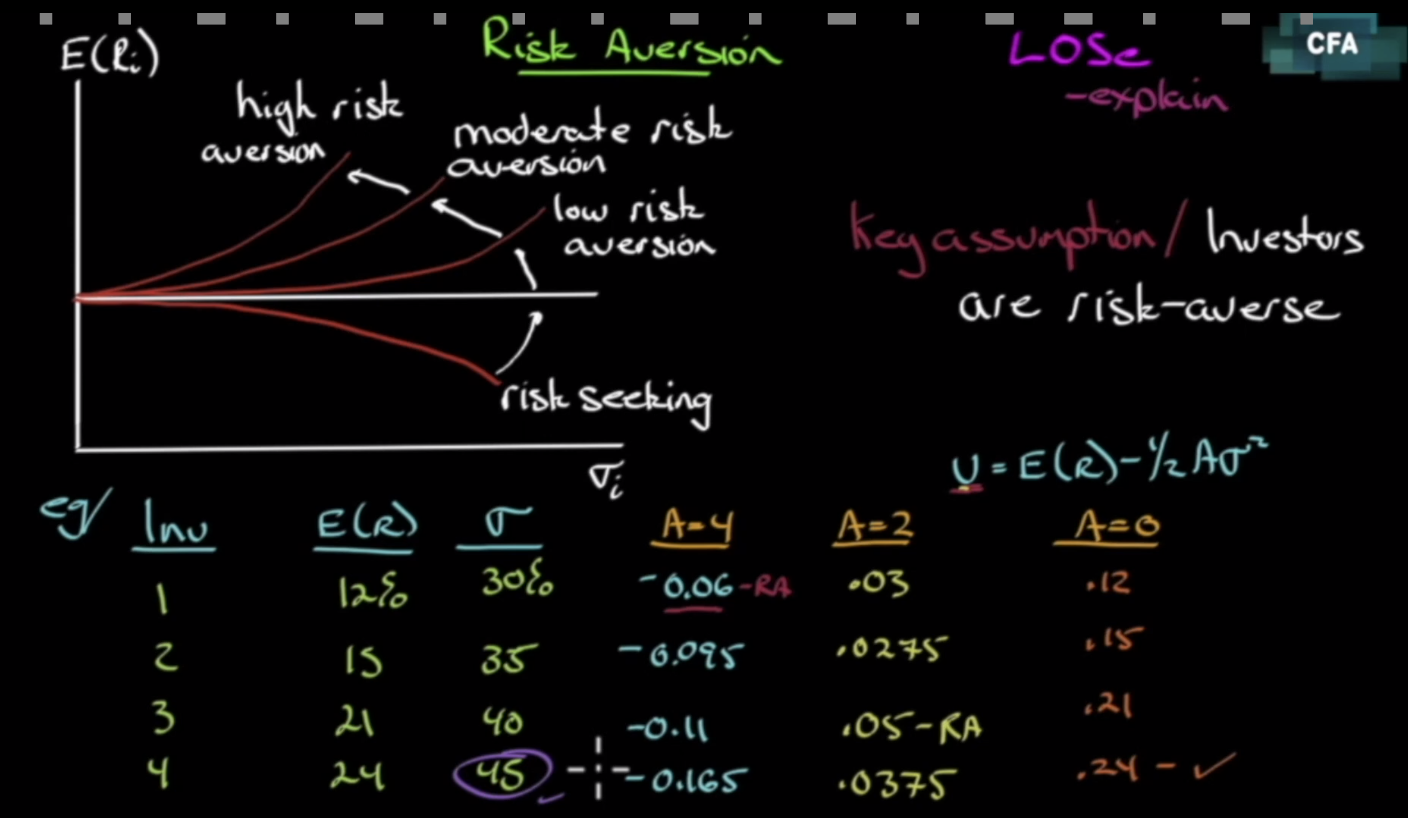 E(Ri)
Risk Aversion
LOSe
-explain
CFA
high risk
aversion
moderate risk
aversion
low risk
aversion
risk seeking
σi
Key assumption/ Investors
are risk-averse
U = E(R) - 1/2 Aσ²
eg/ Inv E(R) σ A=4 A=2 A=0
1 12% 30% -0.06 -RA .03 .12
2 15 35 -0.095 .0275 .15
3 21 40 -0.11 .05 - RA .21
4 24 45 -0.165 .0375 .24 - ✓